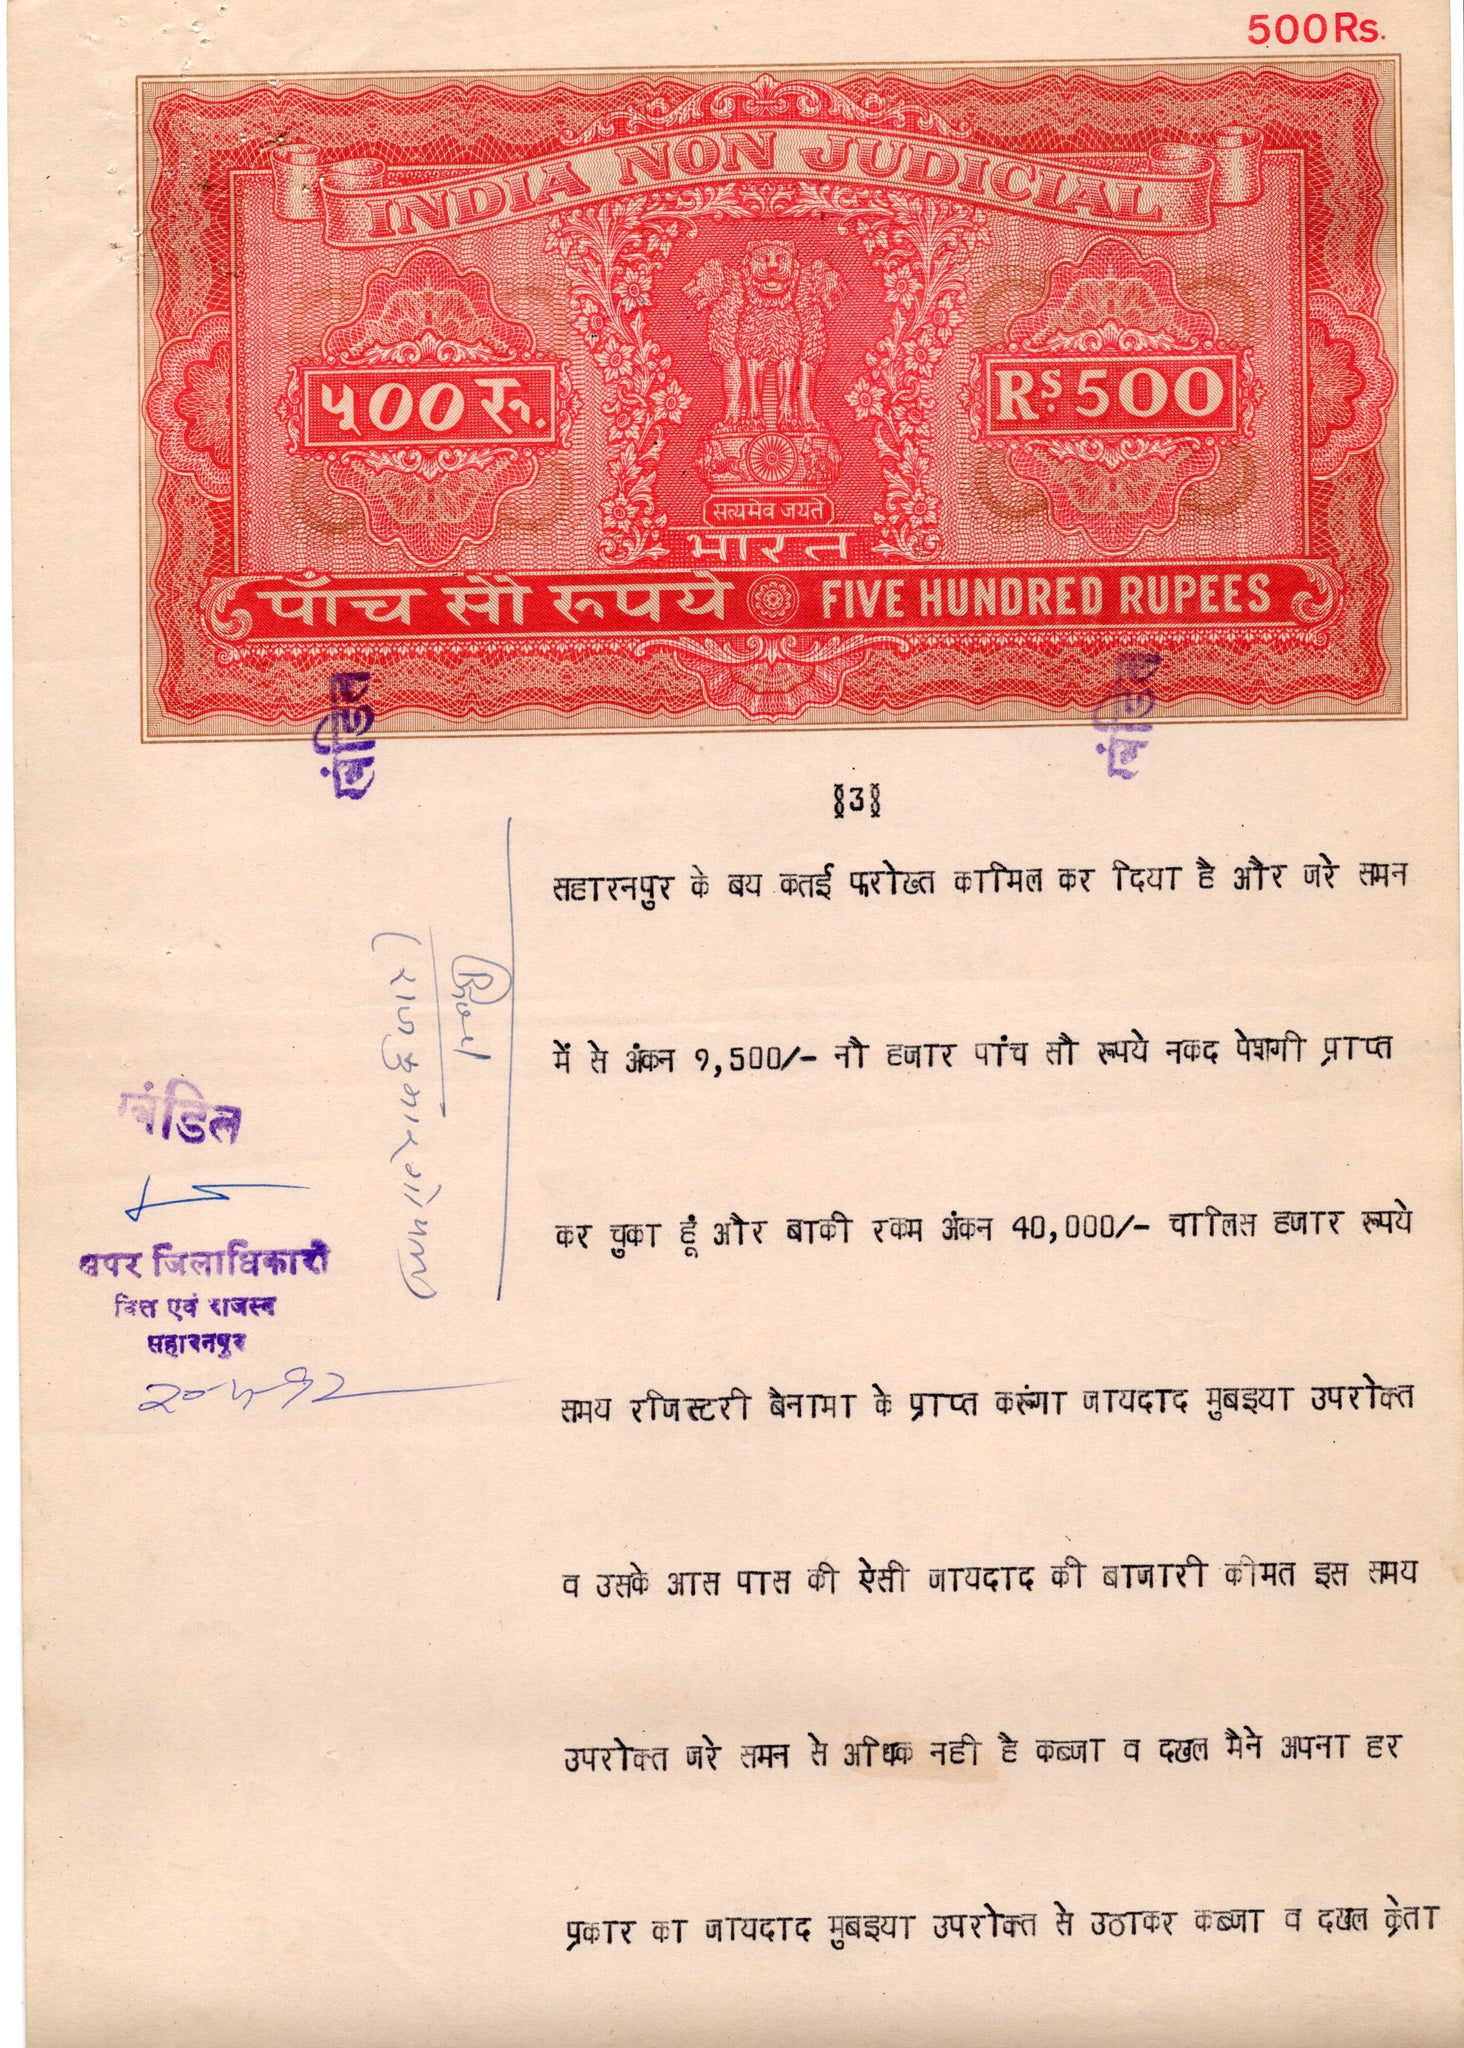 500Rs.
INDIA NON JUDICIAL
५00 रु.
Rs. 500
सत्यमेव जयते
भारत
पाँच सौ रुपये FIVE HUNDRED RUPEES
खंडित
खंडित
§3§
सहारनपुर के बय कतई फरोख्त कामिल कर दिया है और जरे समन
में से अंकन 9,500/- नौ हजार पांच सौ रूपये नकद पेशगी प्राप्त
कर चुका हूं और बाकी रकम अंकन 40,000/- चालिस हजार रूपये
समय रजिस्टरी बैनामा के प्राप्त करूंगा जायदाद मुबइया उपरोक्त
व उसके आस पास की ऐसी जायदाद की बाजारी कीमत इस समय
उपरोक्त जरे समन से अधिक नही है कब्जा व दखल मैने अपना हर
प्रकार का जायदाद मुबइया उपरोक्त से उठाकर कब्जा व दखल क्रेता
खंडित
अपर जिलाधिकारी
वित्त एवं राजस्व
सहारनपुर
(राजकुमार गोयल)